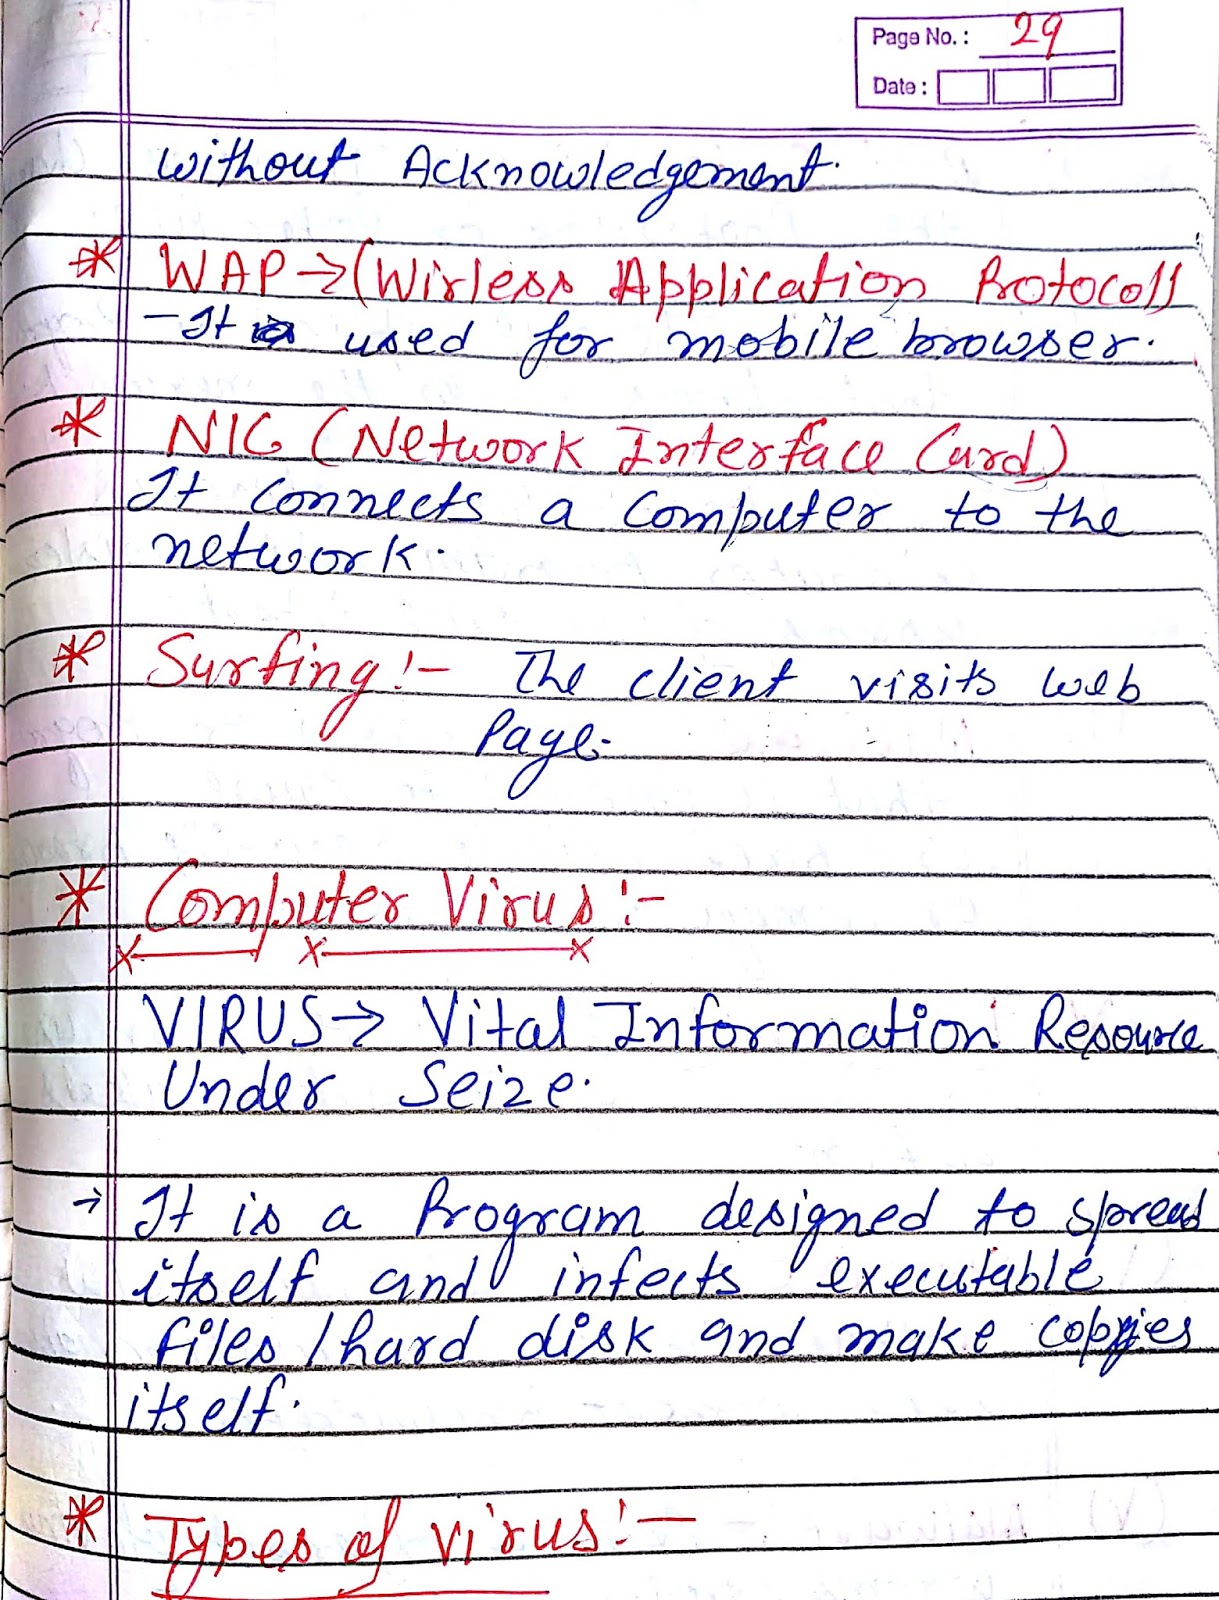 Page No. : 29
Date :
without Acknowledgement.
* WAP → (Wirless Application Protocol)
- It is used for mobile browser.
* NIC (Network Interface Card)
It connects a computer to the
network.
* Surfing :- The client visits web
Page.
* Computer Virus :-
VIRUS → Vital Information Resource
Under Seize.
→ It is a Program designed to spread
itself and infects executable
files / hard disk and make copies
itself.
* Types of virus :-